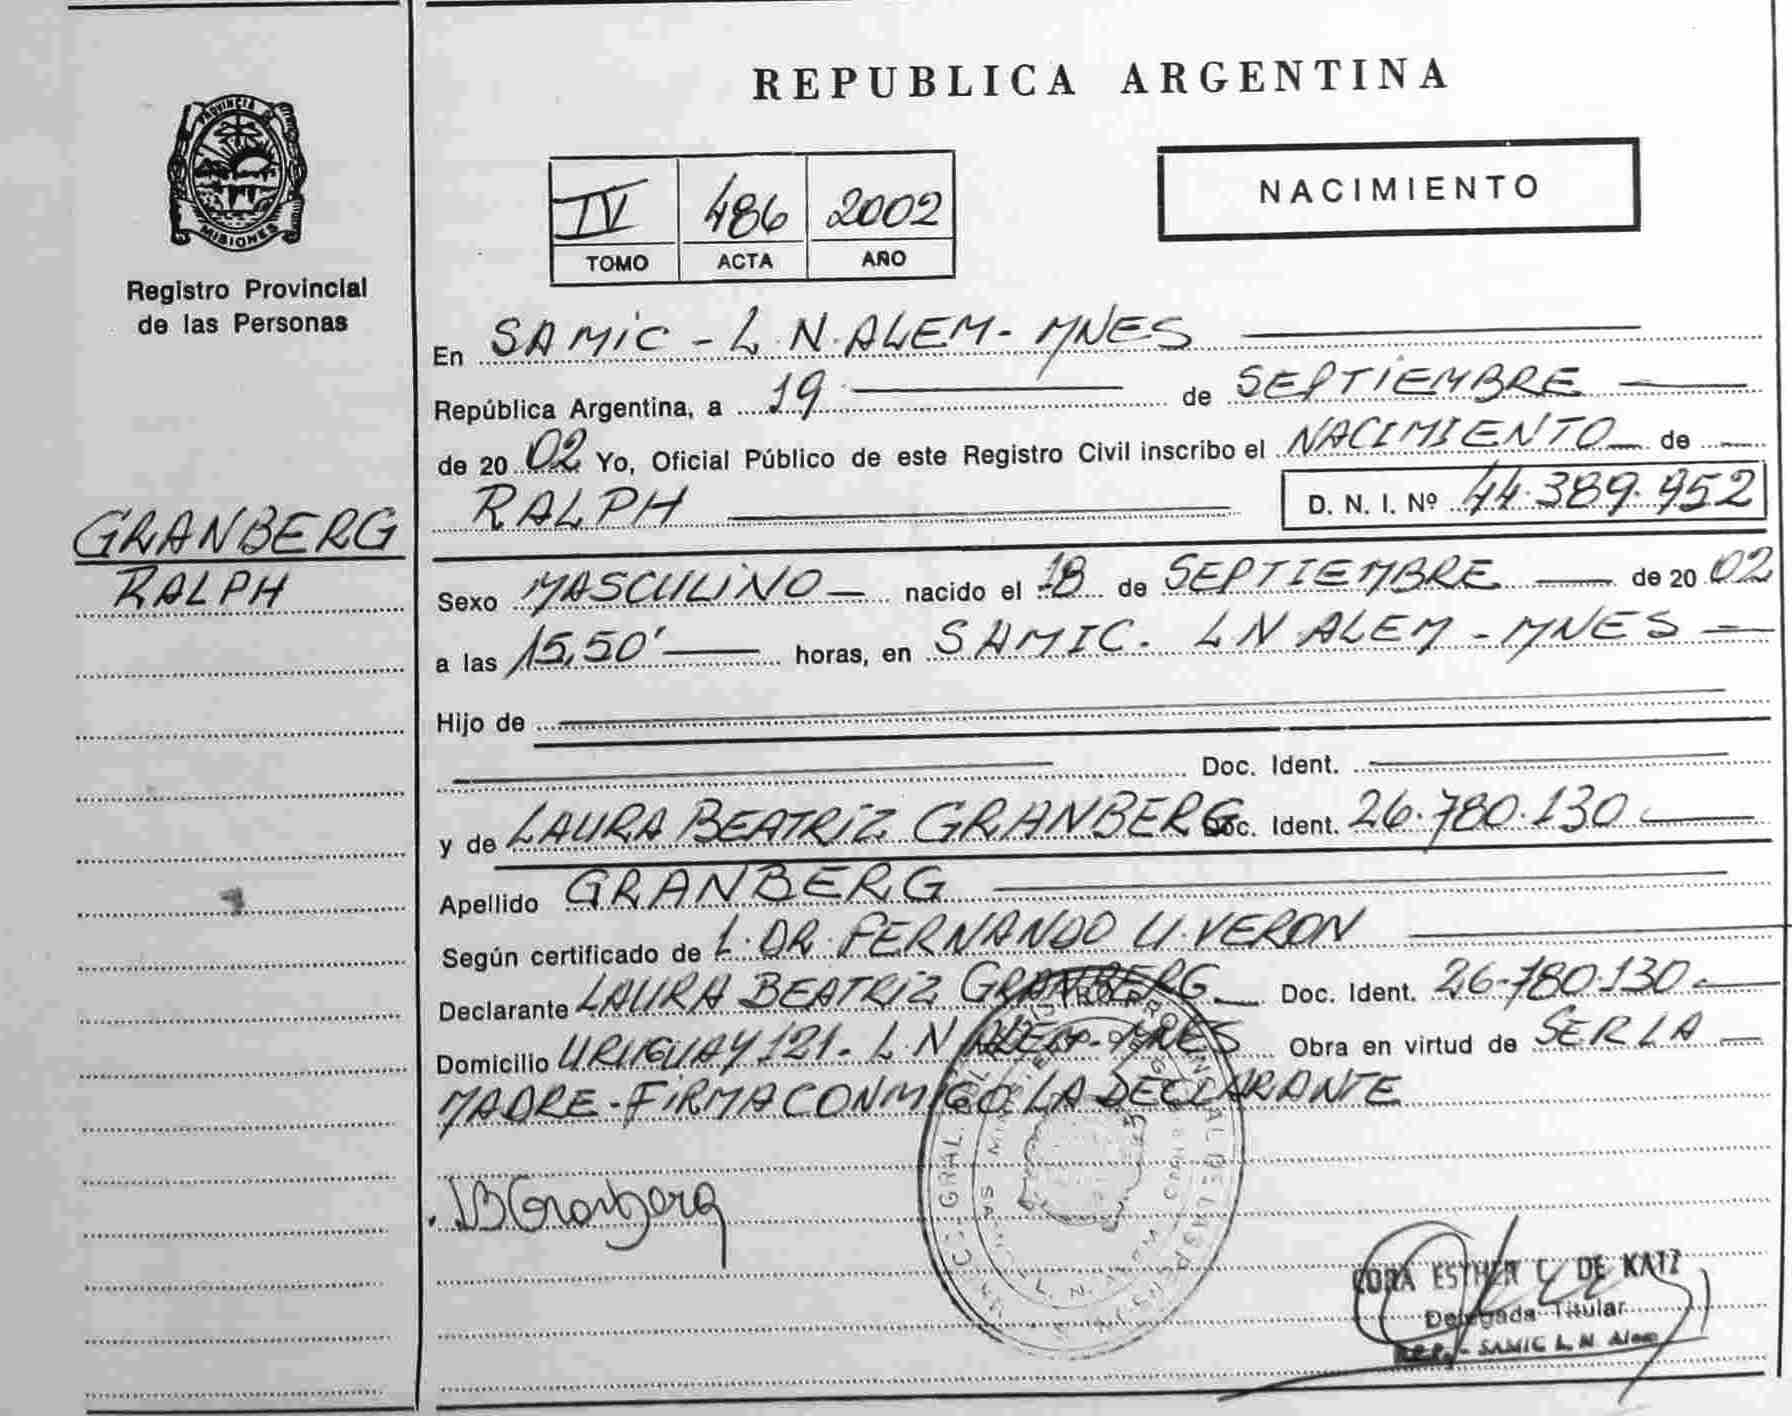 PROVINCIA DE
MISIONES
Registro Provincial
de las Personas
GRANBERG
RALPH
REPUBLICA ARGENTINA
IV 486 2002
TOMO ACTA AÑO
NACIMIENTO
En SAMIC - L.N. ALEM - MNES
República Argentina, a 19 de SEPTIEMBRE
de 20 02 Yo, Oficial Público de este Registro Civil inscribo el NACIMIENTO de
RALPH D. N. I. Nº 44.389.952
Sexo MASCULINO nacido el 18 de SEPTIEMBRE de 20 02
a las 15,50' horas, en SAMIC. LN ALEM - MNES
Hijo de
Doc. Ident.
y de LAURA BEATRIZ GRANBERG Doc. Ident. 26.780.130
Apellido GRANBERG
Según certificado de L. DR. FERNANDO U. VERON
Declarante LAURA BEATRIZ GRANBERG Doc. Ident. 26.780.130
Domicilio URUGUAY 121. L.N ALEM. MNES Obra en virtud de SER LA
MADRE - FIRMA CONMIGO LA DECLARANTE
LBGranberg
ESTHER C. DE KATZ
Delegada Titular
SAMIC L. N. Alem